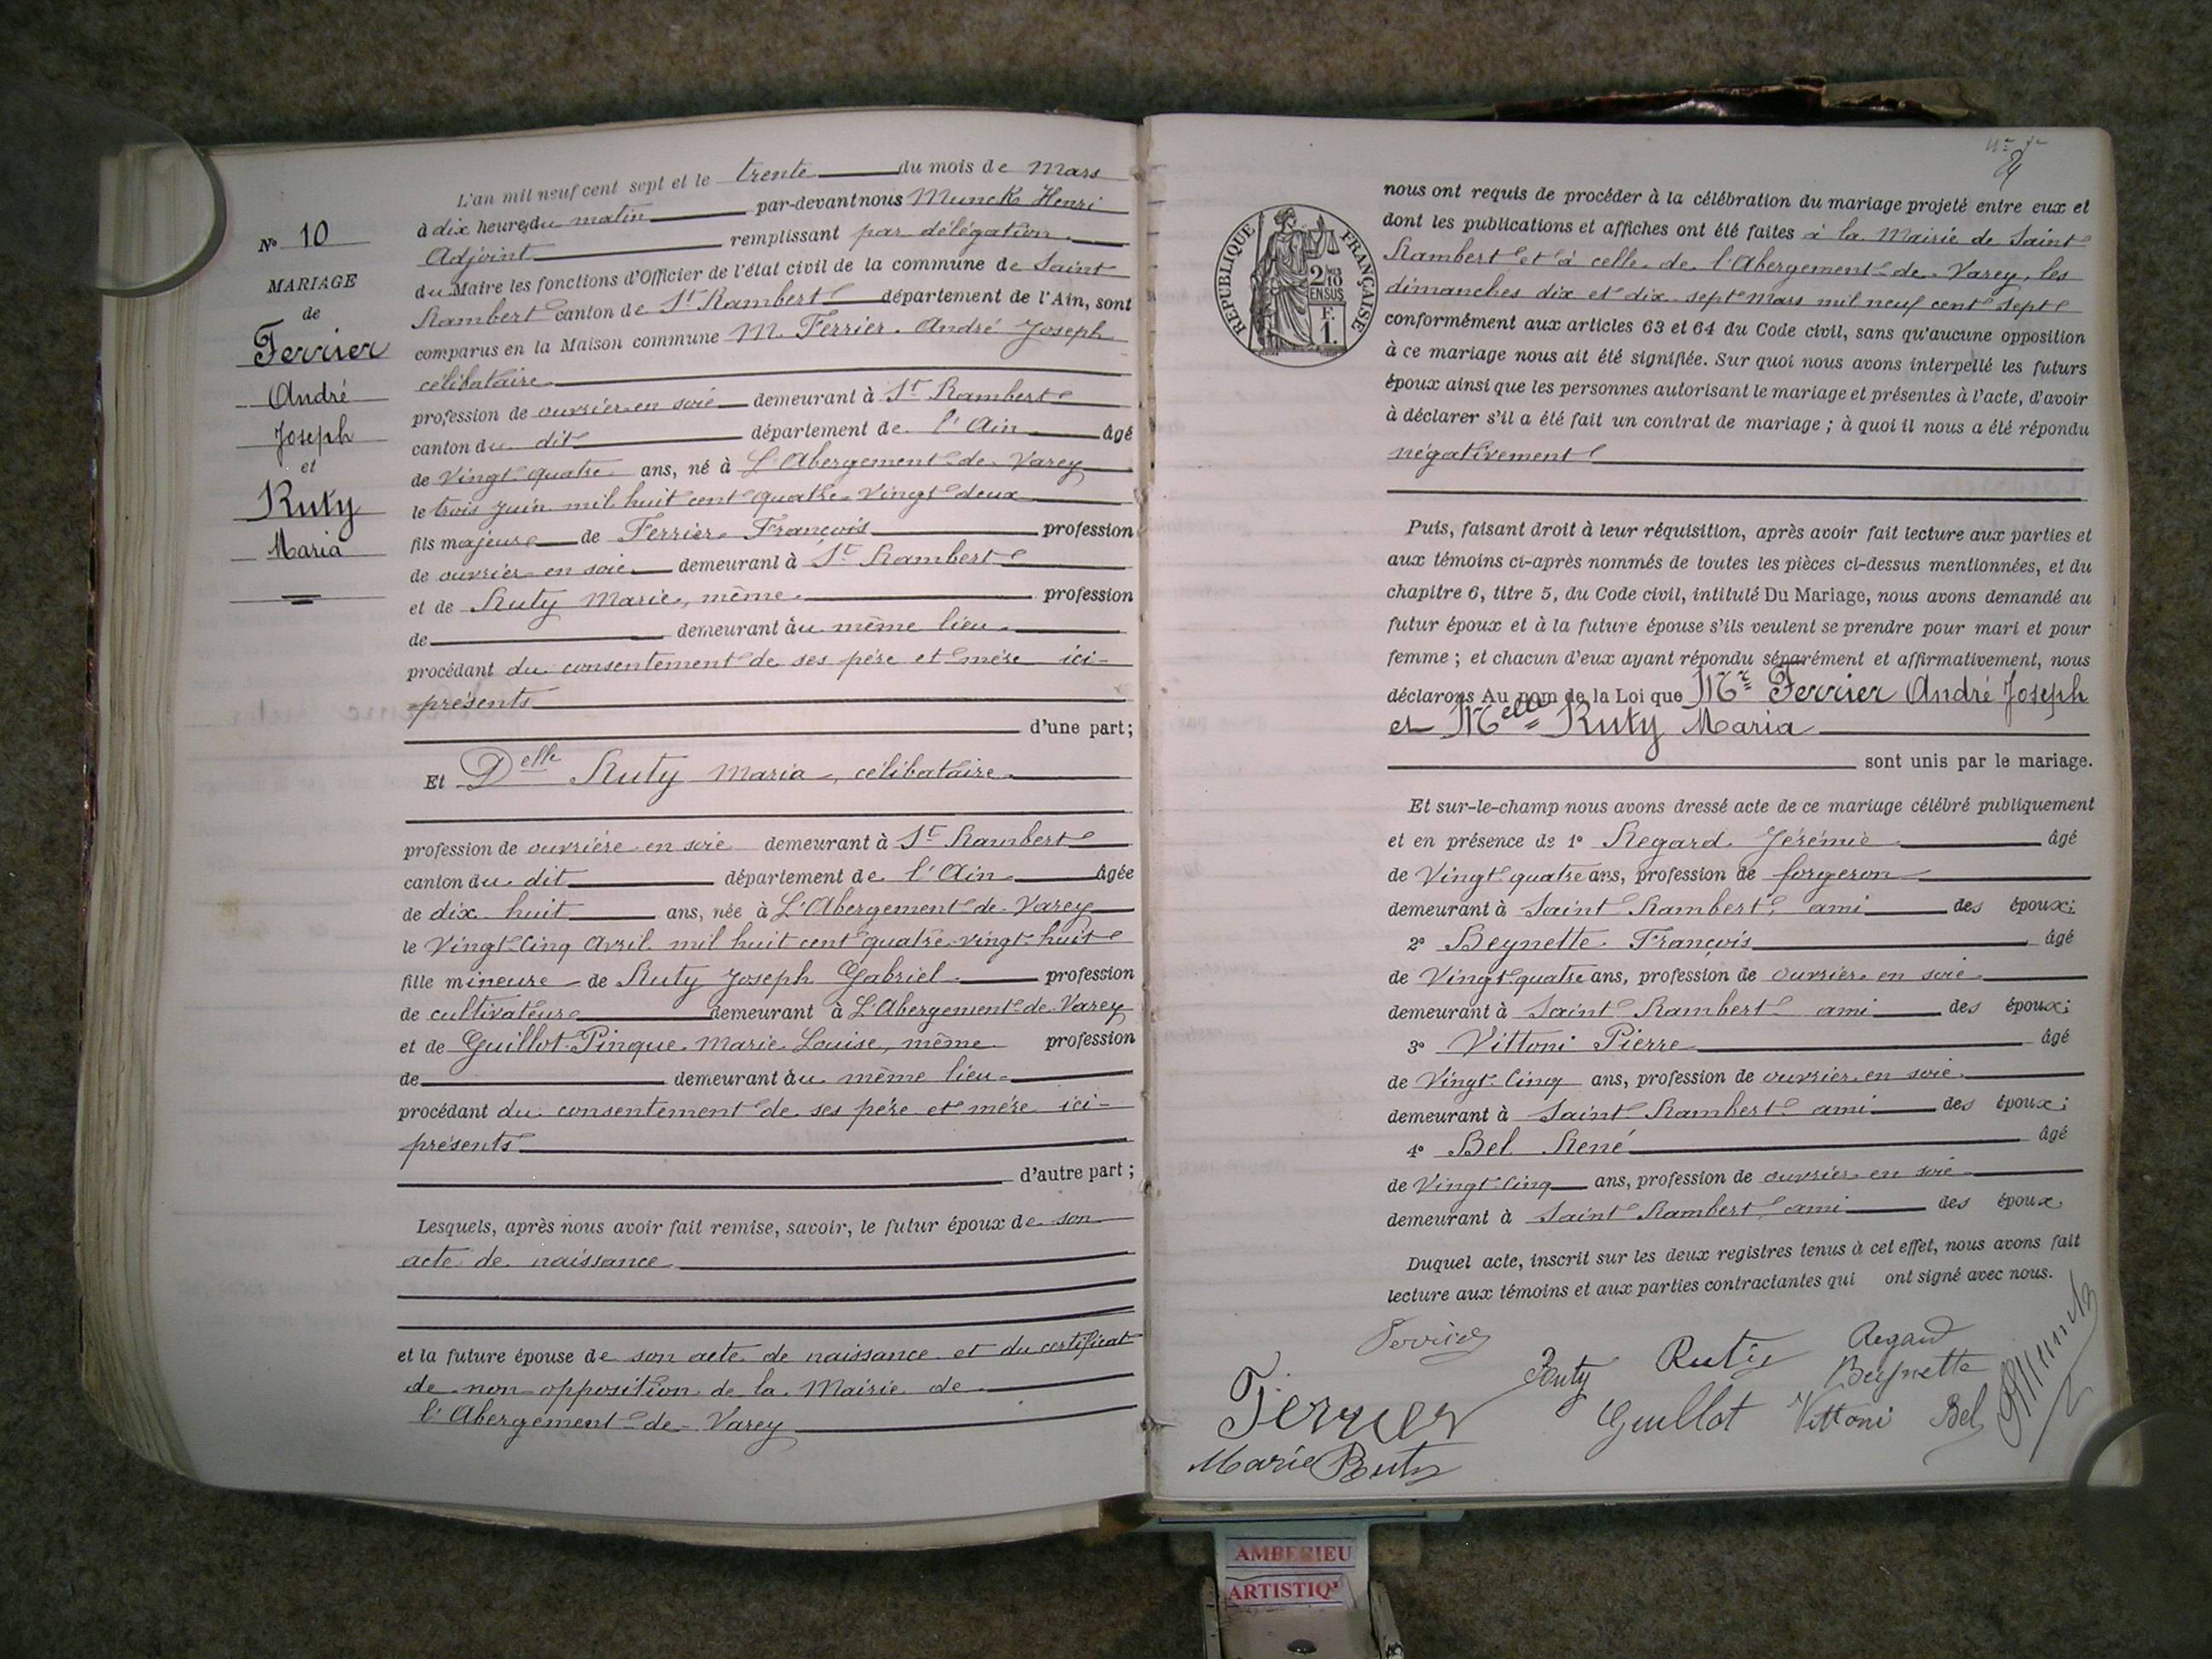 L'an mil neuf cent sept et le trente du mois de Mars
à dix heures du matin par-devant nous Munck Henri
Adjoint remplissant par délégation
du Maire les fonctions d'Officier de l'état civil de la commune de Saint
Rambert canton de St Rambert département de l'Ain, sont
comparus en la Maison commune M. Ferrier André Joseph
célibataire
profession de ouvrier en soie demeurant à St Rambert
canton du dit département de l'Ain âgé
de Vingt quatre ans, né à L'Abergement-de-Varey
le trois Juin mil huit cent quatre-Vingt deux
fils majeur de Ferrier François profession
de ouvrier en soie demeurant à St Rambert
et de Ruty Marie, même profession
de demeurant au même lieu
procédant du consentement de ses père et mère ici-
présents
d'une part;
Et Delle Ruty Maria, célibataire
profession de ouvrière en soie demeurant à St Rambert
canton du dit département de l'Ain âgée
de dix huit ans, née à L'Abergement-de-Varey
le Vingt-Cinq Avril mil huit cent quatre-vingt-huit
fille mineure de Ruty Joseph Gabriel profession
de cultivateur demeurant à L'Abergement-de-Varey
et de Guillot-Pinque Marie Louise, même profession
de demeurant au même lieu
procédant du consentement de ses père et mère ici-
présents
d'autre part;
Lesquels, après nous avoir fait remise, savoir, le futur époux de son
acte de naissance
et la future épouse de son acte de naissance et du certificat
de non-opposition de la Mairie de
l'Abergement-de-Varey
No 10
MARIAGE
de
Ferrier
André
Joseph
et
Ruty
Maria
RÉPUBLIQUE FRANÇAISE
2/10 EN SUS
F.
1.
nous ont requis de procéder à la célébration du mariage projeté entre eux et
dont les publications et affiches ont été faites à la Mairie de Saint
Rambert et à celle de l'Abergement-de-Varey, les
dimanches dix et dix-sept Mars mil neuf cent sept
conformément aux articles 63 et 64 du Code civil, sans qu'aucune opposition
à ce mariage nous ait été signifiée. Sur quoi nous avons interpellé les futurs
époux ainsi que les personnes autorisant le mariage et présentes à l'acte, d'avoir
à déclarer s'il a été fait un contrat de mariage; à quoi il nous a été répondu
négativement
Puis, faisant droit à leur réquisition, après avoir fait lecture aux parties et
aux témoins ci-après nommés de toutes les pièces ci-dessus mentionnées, et du
chapitre 6, titre 5, du Code civil, intitulé Du Mariage, nous avons demandé au
futur époux et à la future épouse s'ils veulent se prendre pour mari et pour
femme; et chacun d'eux ayant répondu séparément et affirmativement, nous
déclarons Au nom de la Loi que Mr Ferrier André Joseph
et Melle Ruty Maria
sont unis par le mariage.
Et sur-le-champ nous avons dressé acte de ce mariage célébré publiquement
et en présence de 1° Regard Jérémie âgé
de Vingt-quatre ans, profession de forgeron
demeurant à Saint-Rambert, ami des époux;
2° Beynette François âgé
de Vingt-quatre ans, profession de ouvrier en soie
demeurant à Saint-Rambert ami des époux;
3° Vittoni Pierre âgé
de Vingt-Cinq ans, profession de ouvrier en soie
demeurant à Saint-Rambert ami des époux;
4° Bel René âgé
de Vingt-Cinq ans, profession de ouvrier en soie
demeurant à Saint-Rambert, ami des époux
Duquel acte, inscrit sur les deux registres tenus à cet effet, nous avons fait
lecture aux témoins et aux parties contractantes qui ont signé avec nous.
Ferrier Ruty Ruty Regard
Beynette
Ferrier Guillot Vittoni Bel HMunck
Marie Ruty
AMBERIEU
ARTISTIQ'